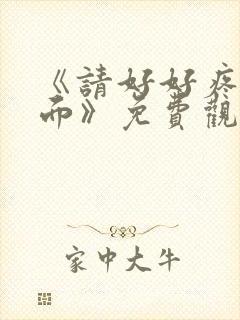 《請好好疼
而》免費觀
家中大牛